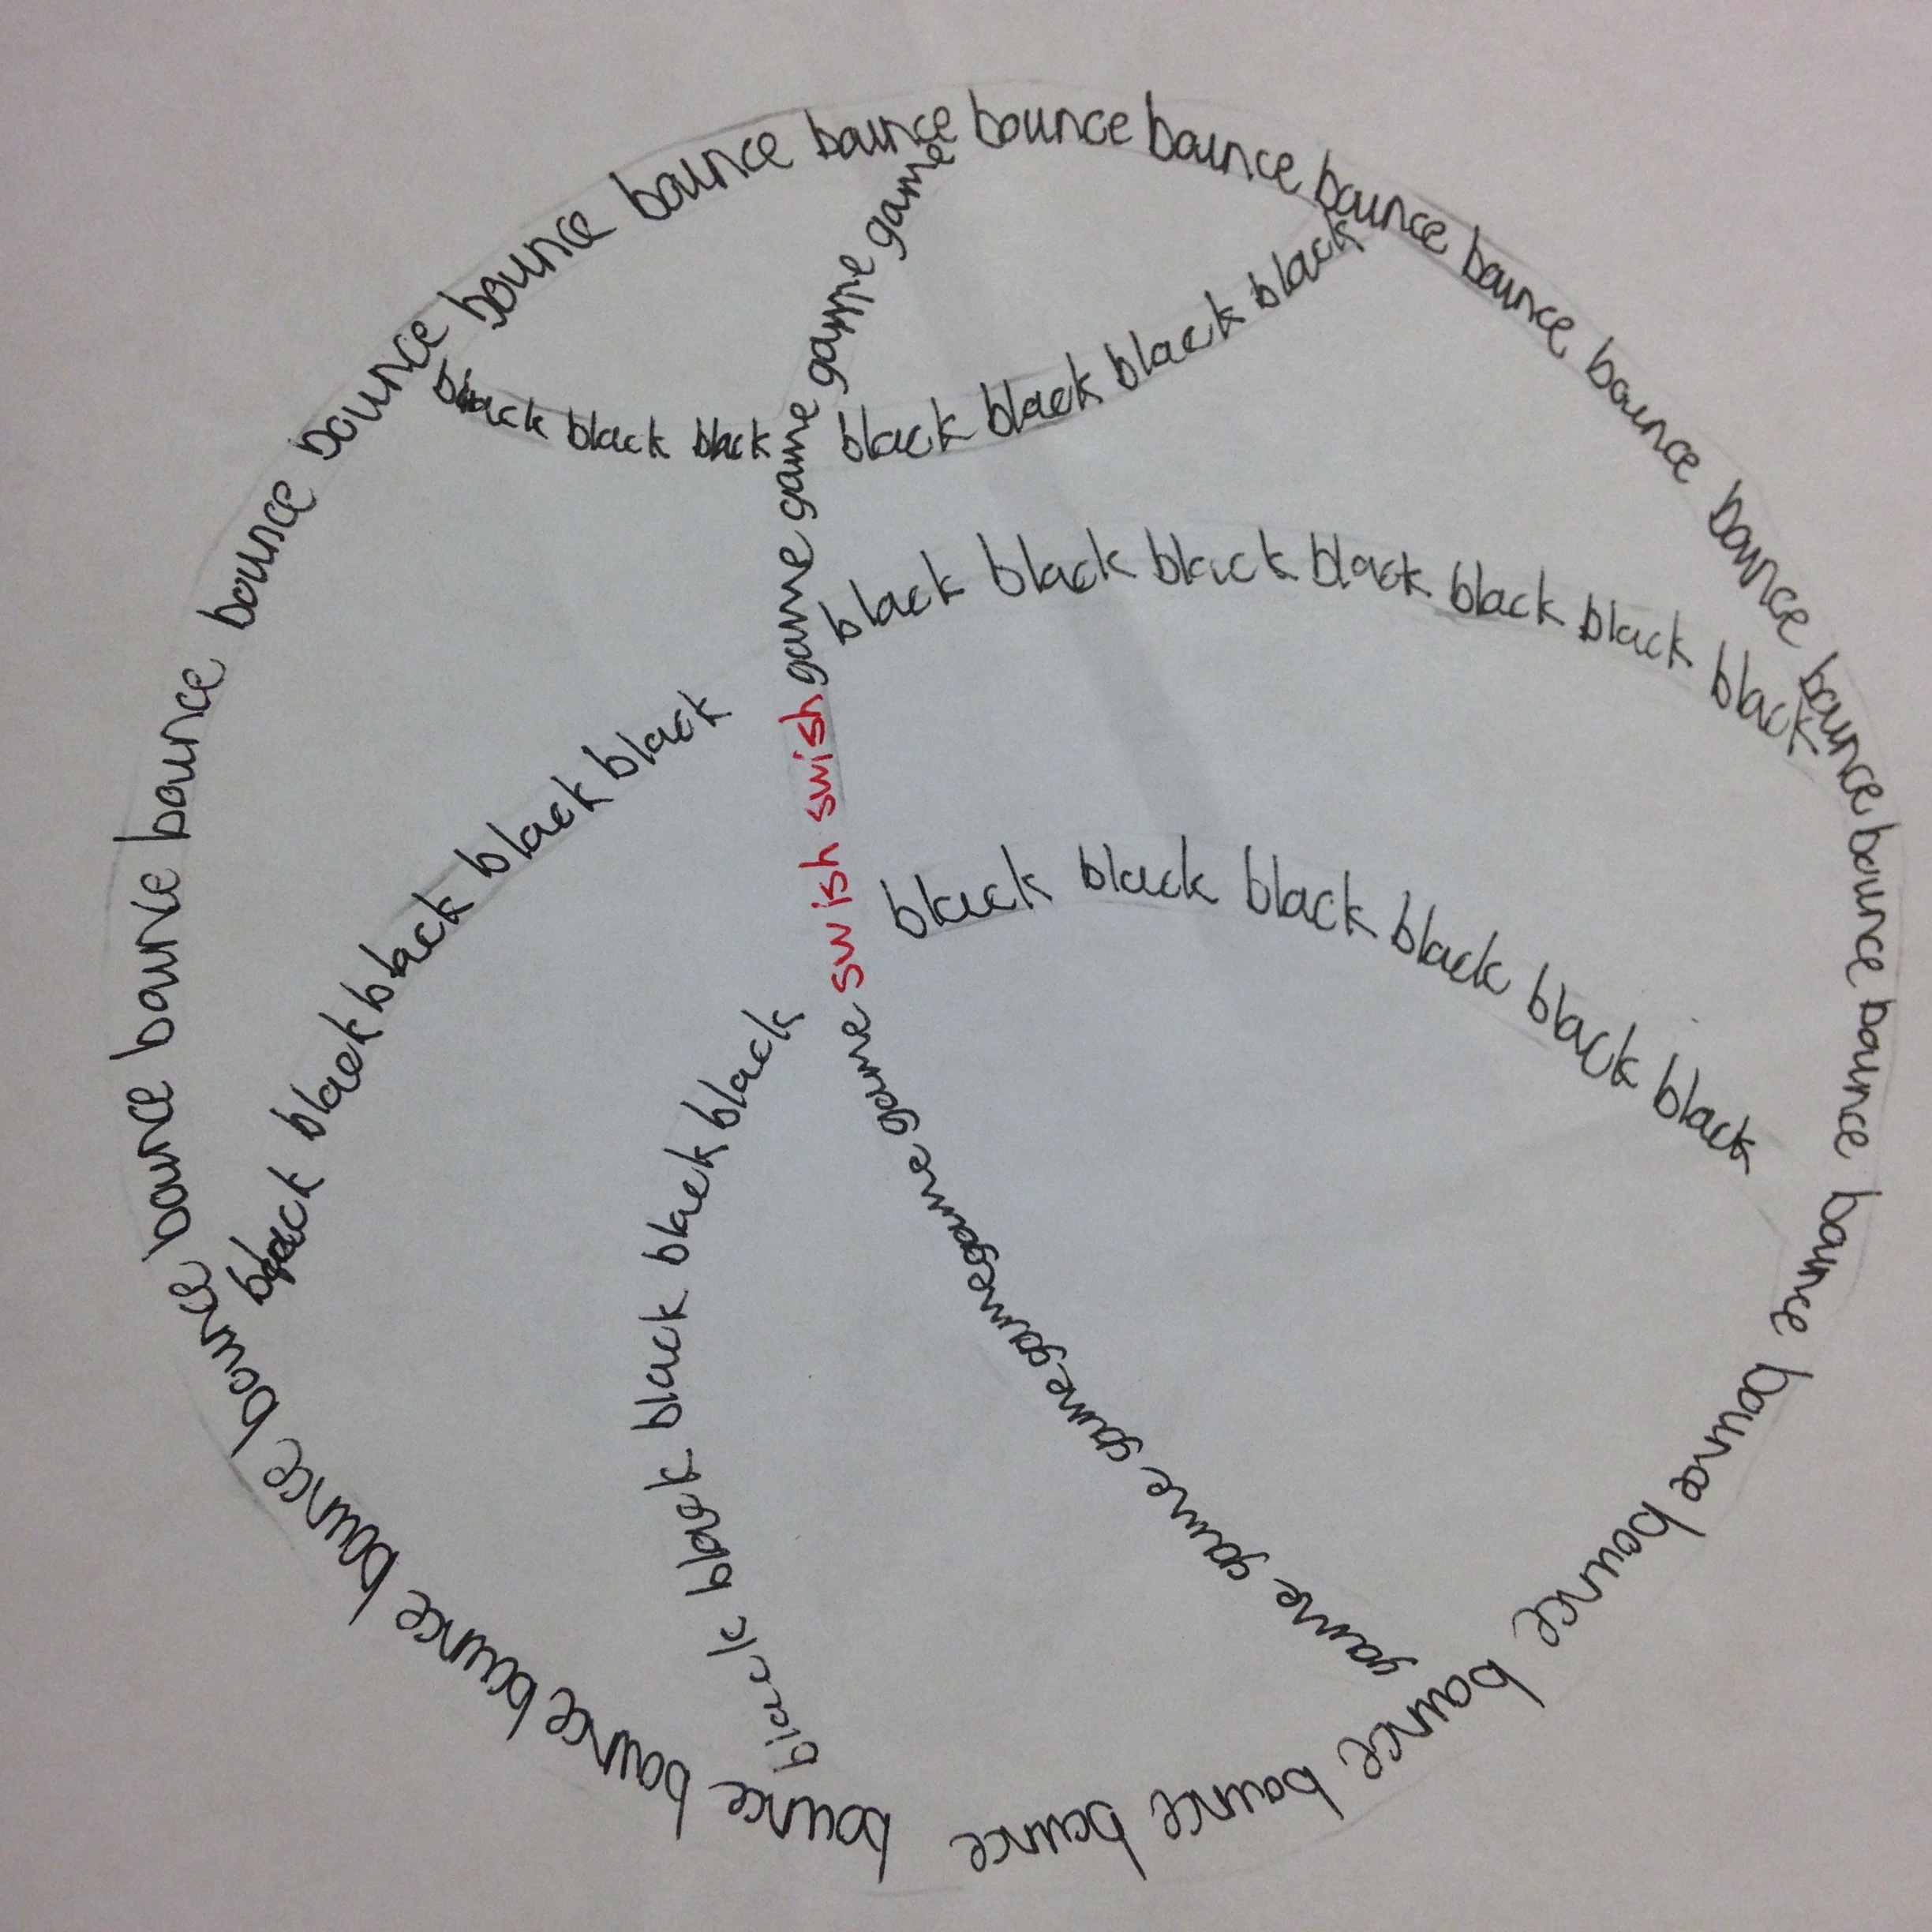 bounce bounce bounce bounce bounce bounce bounce bounce bounce bounce bounce bounce bounce bounce bounce bounce bounce bounce bounce bounce bounce bounce bounce bounce bounce bounce bounce bounce
black black black black black black black
game game game game swish swish game game game game game game
black black black black black black black black black black black black
black black black black black black
black black black black black